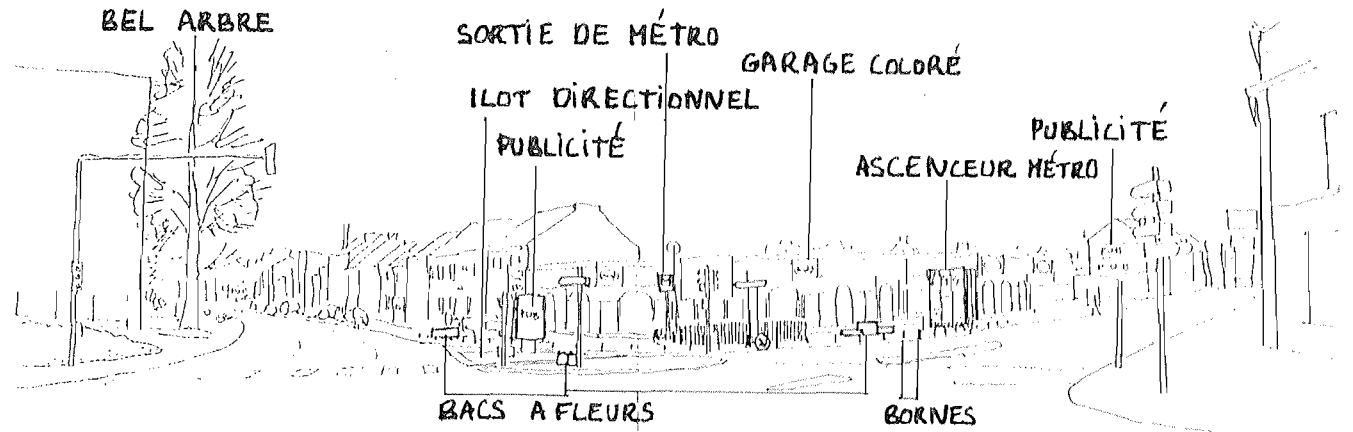 BEL ARBRE
SORTIE DE MÉTRO
GARAGE COLORÉ
ILOT DIRECTIONNEL
PUBLICITÉ
PUBLICITÉ
ASCENCEUR MÉTRO
PUB
BACS A FLEURS
BORNES